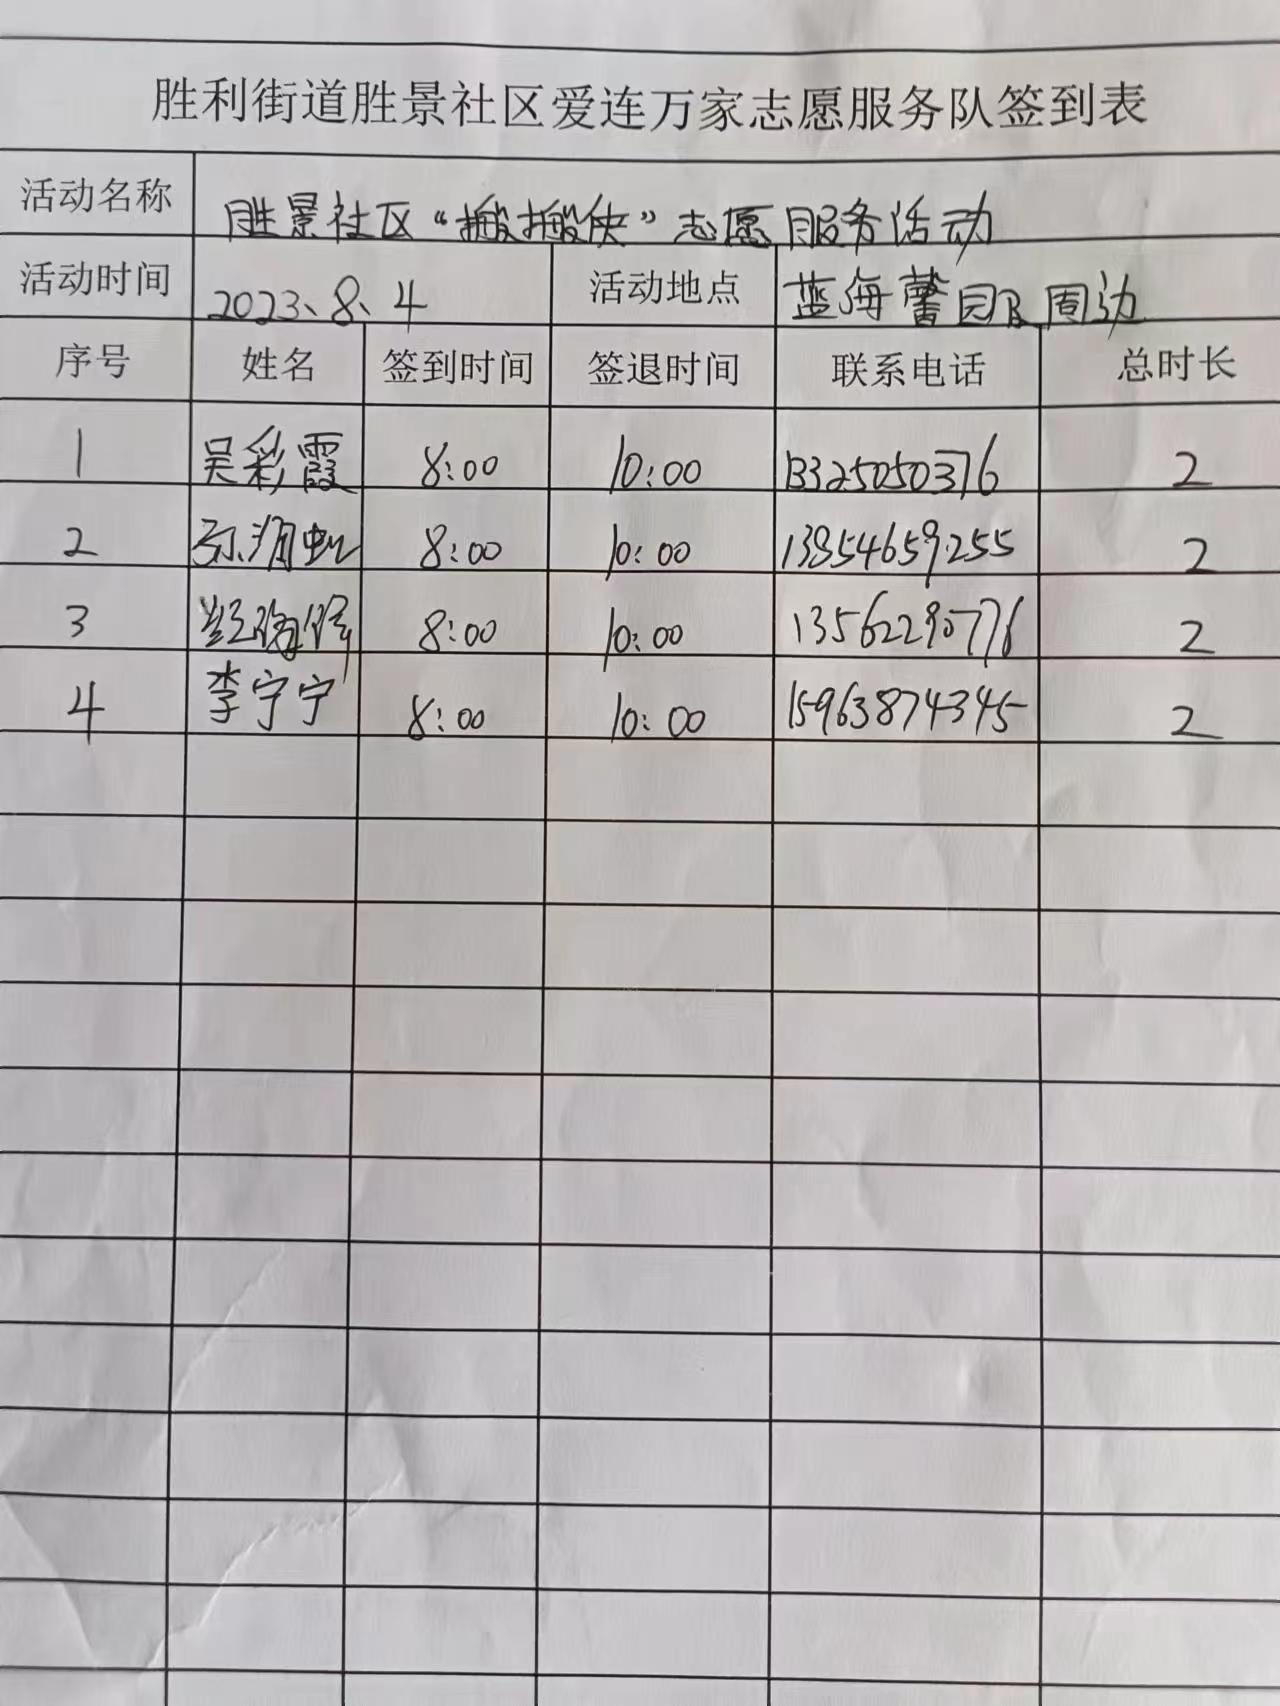 胜利街道胜景社区爱连万家志愿服务队签到表
活动名称 胜景社区“搬搬侠”志愿服务活动
活动时间 2023、8、4 活动地点 蓝海馨园及周边
序号 姓名 签到时间 签退时间 联系电话 总时长
1 吴彩霞 8:00 10:00 13325050376 2
2 8:00 10:00 13854659255 2
3 8:00 10:00 13562290776 2
4 李宁宁 8:00 10:00 15963874345 2